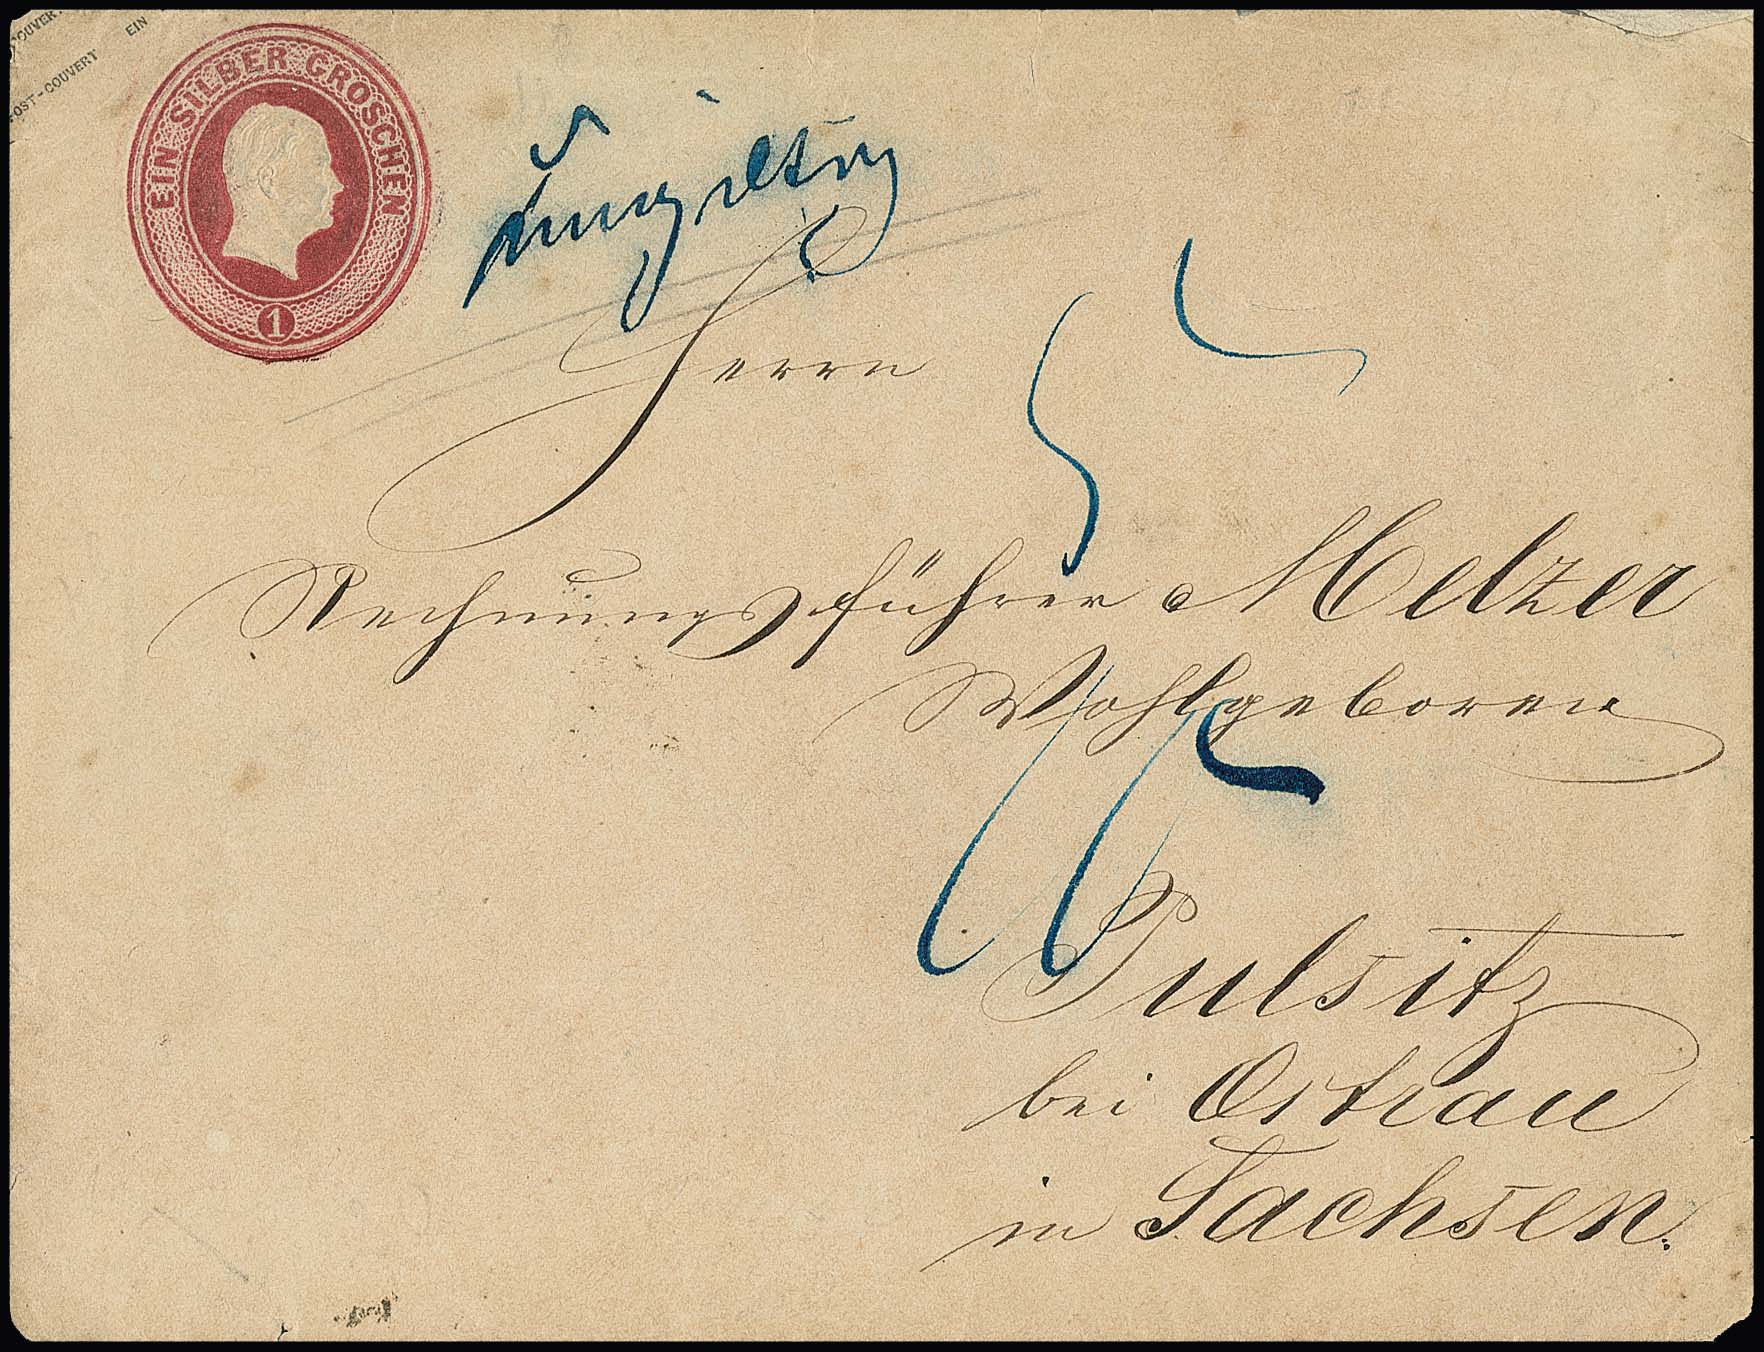 POST-COUVERT EIN
EIN SILBER GROSCHEN
1
ungiltig
Herrn
Rechnungsführer Melzer
Wohlgeboren
Pulsitz
bei Ostrau
in Sachsen.